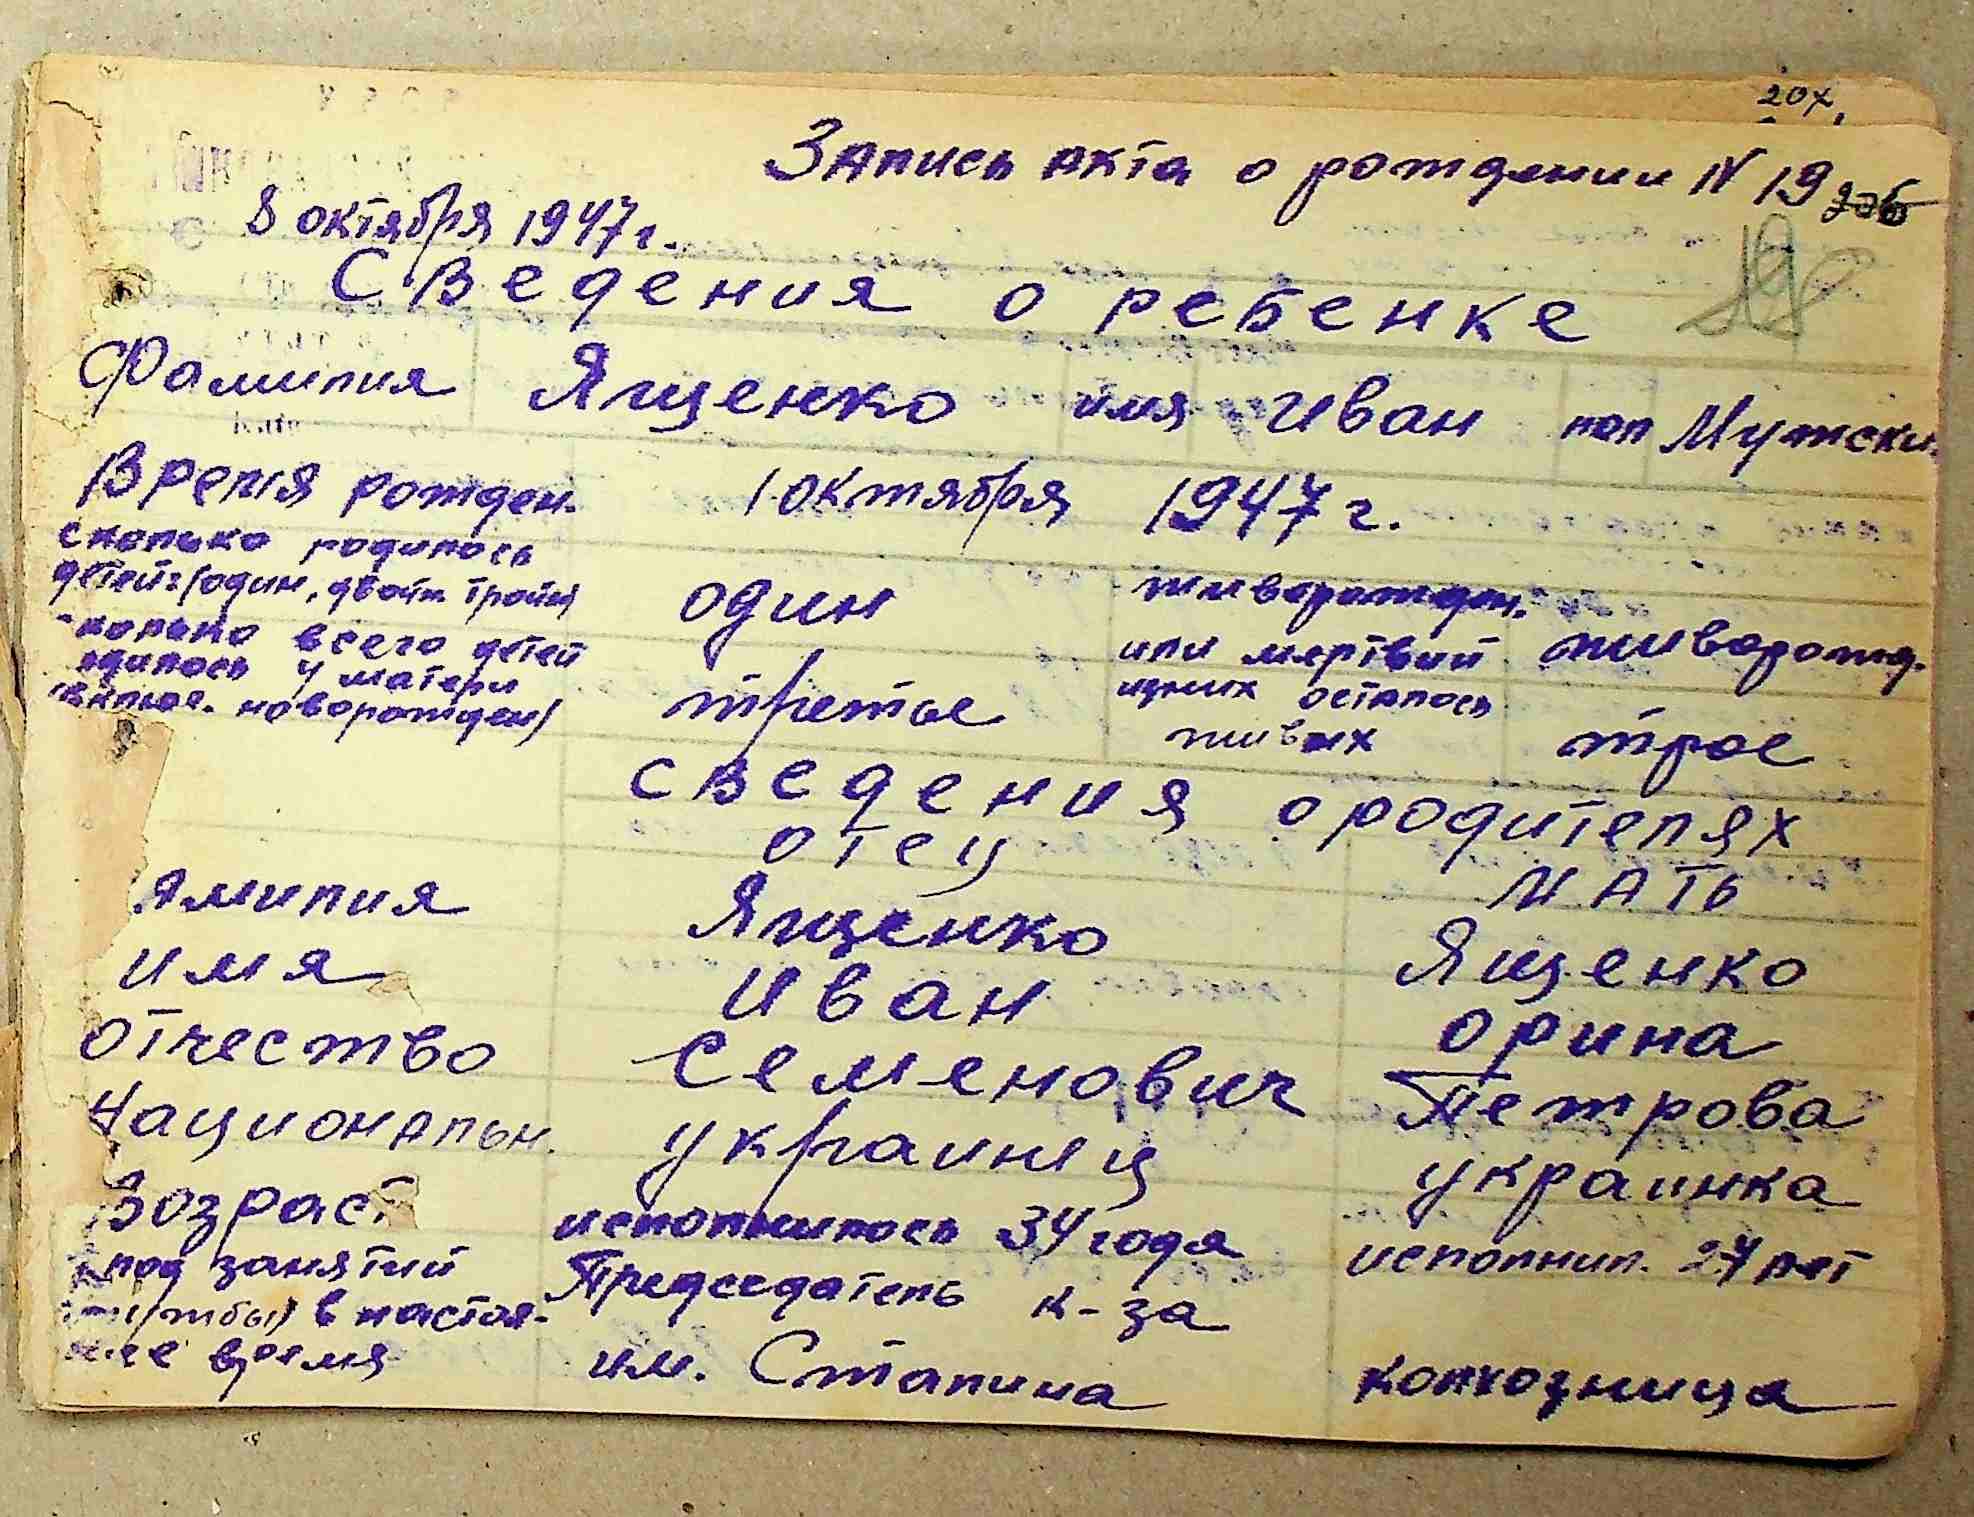 20х.
Запись акта о рождении N 19
8 октября 1947 г.
Сведения о ребенке
Фамилия Ященко имя Иван пол Мужски.
Время рожден. 1 октября 1947 г.
сколько родилось
детей: (один, двойн тройн) один живорожден.
или мертвий живорожд.
колько всего детей
одилось у матери
включ. новорожден) третье из них осталось
живих трое
Сведения о родителях
отец мать
амилия Ященко Ященко
имя Иван Орина
отчество Семенович Петрова
Национальн. украинец украинка
Возраст исполнилось 34 года исполнил. 27 лет
род занятий Председатель к-за
жбы) в настоя-
щее время им. Сталина колхозница